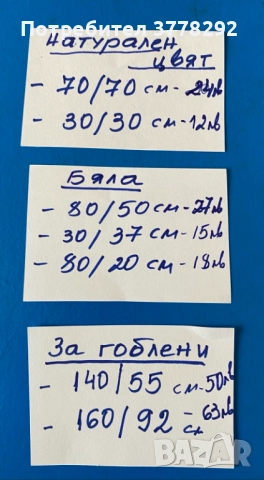 Потребител 3778292
Натурален
цвят
- 70/70 см - 24лв
- 30/30 см - 12лв
Бяла
- 80/50 см - 27лв
- 30/37 см - 15лв
- 80/20 см - 18лв
За гоблени
- 140/55 см - 50лв
- 160/92 см - 63лв
БАZАР